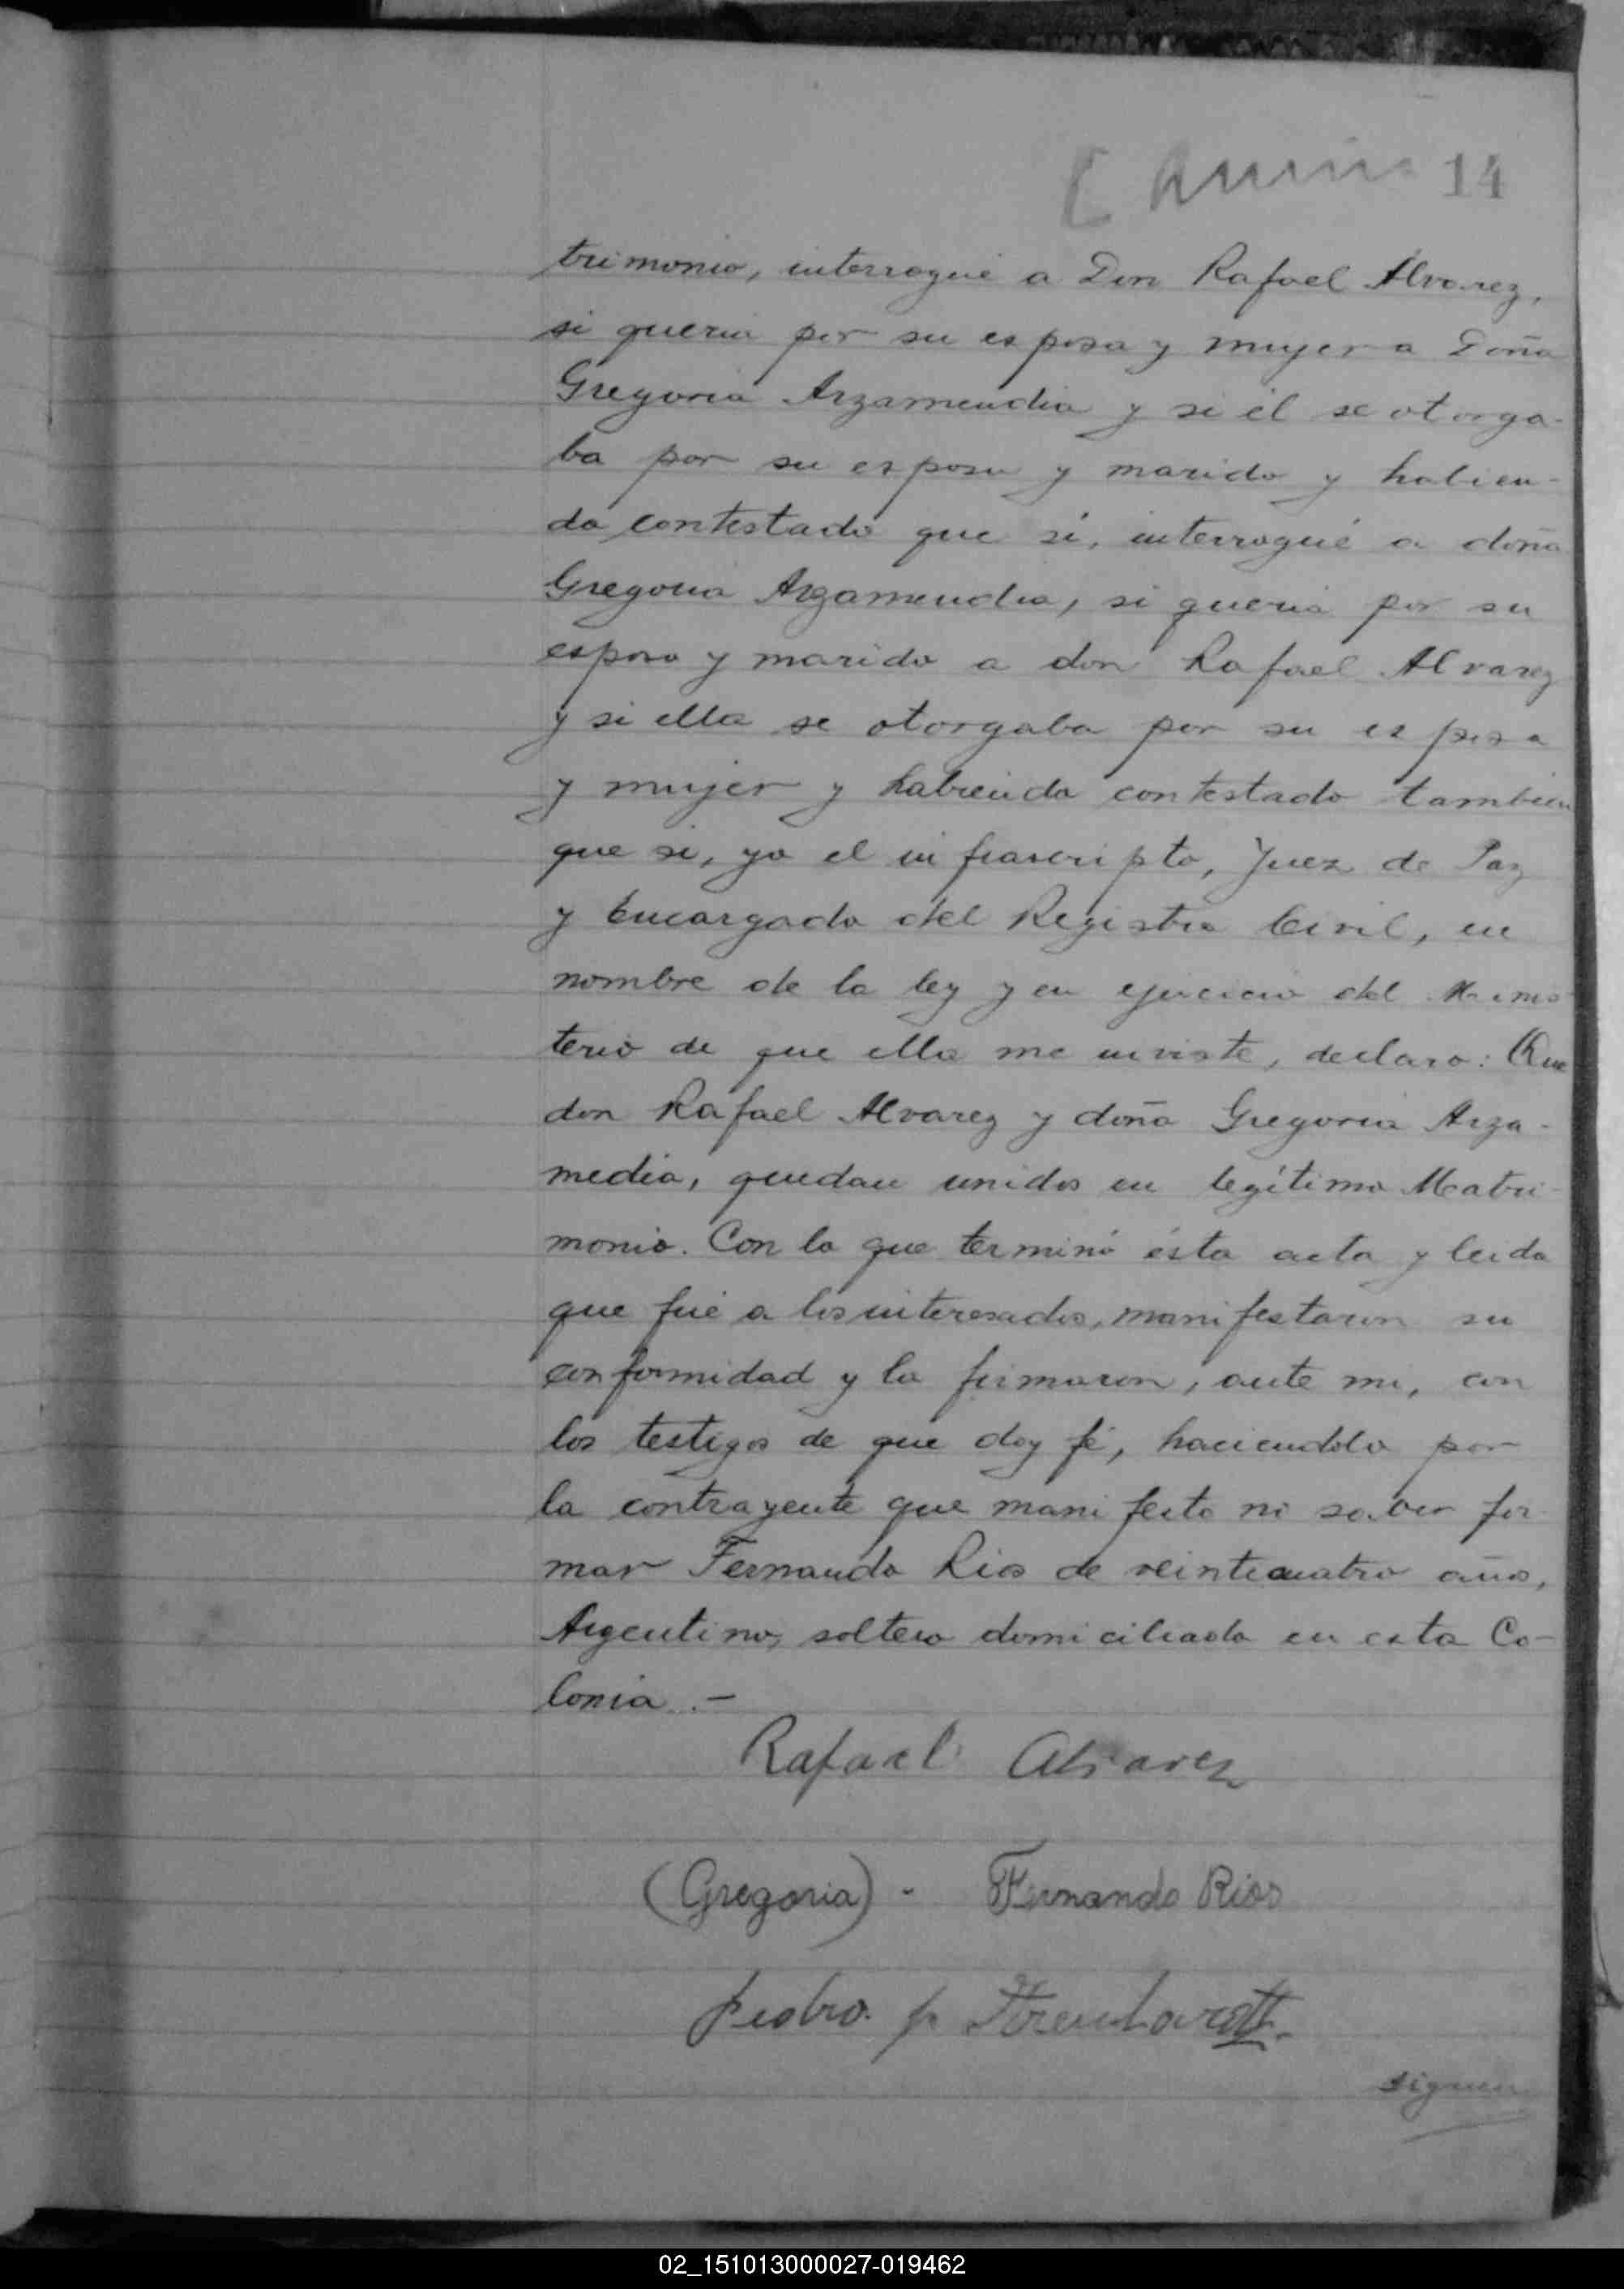 14
trimonio, interrogué a Don Rafael Alvarez,
si queria por su esposa y mujer a Doña
Gregoria Arzamendia y si él se otorga-
ba por su esposo y marido y habien-
do contestado que sí, interrogué a doña
Gregoria Arzamendia, si queria por su
esposo y marido a don Rafael Alvarez
y si ella se otorgaba por su esposa
y mujer y habiendo contestado tambien
que si, yo el infrascripto, Juez de Paz
y Encargado del Registro Civil, en
nombre de la ley y en ejercicio del Minis
terio de que ella me inviste, declaro: Que
don Rafael Alvarez y doña Gregoria Arza-
media, quedan unidos en legítimo Matri-
monio. Con lo que terminó ésta acta y leida
que fué a los interesados, manifestaron su
conformidad y la firmaron, ante mi, con
los testigos de que doy fé, haciendolo por
la contrayente que manifesto no saber fir-
mar Fernando Rios de veinticuatro años,
Argentino, soltero domiciliado en esta Co-
lonia.-
Rafael Alvarez
(Gregoria) - Fernando Rios
Pedro p
siguen
02_151013000027-019462